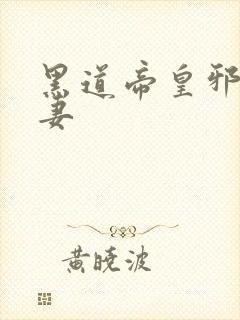 黑道帝皇邪
妻
黄晓波